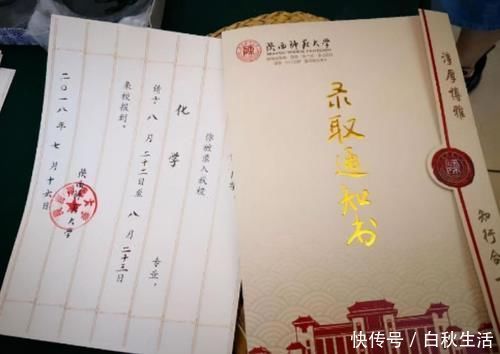 你被录入我校
化学 专业，
请于八月二十二日至八月二十三日
来校报到。
陕西师范大学
二〇一八年七月十六日
陕西师范大学
录取通知书
淳厚博雅
知行合一
快传号 / 白秋生活